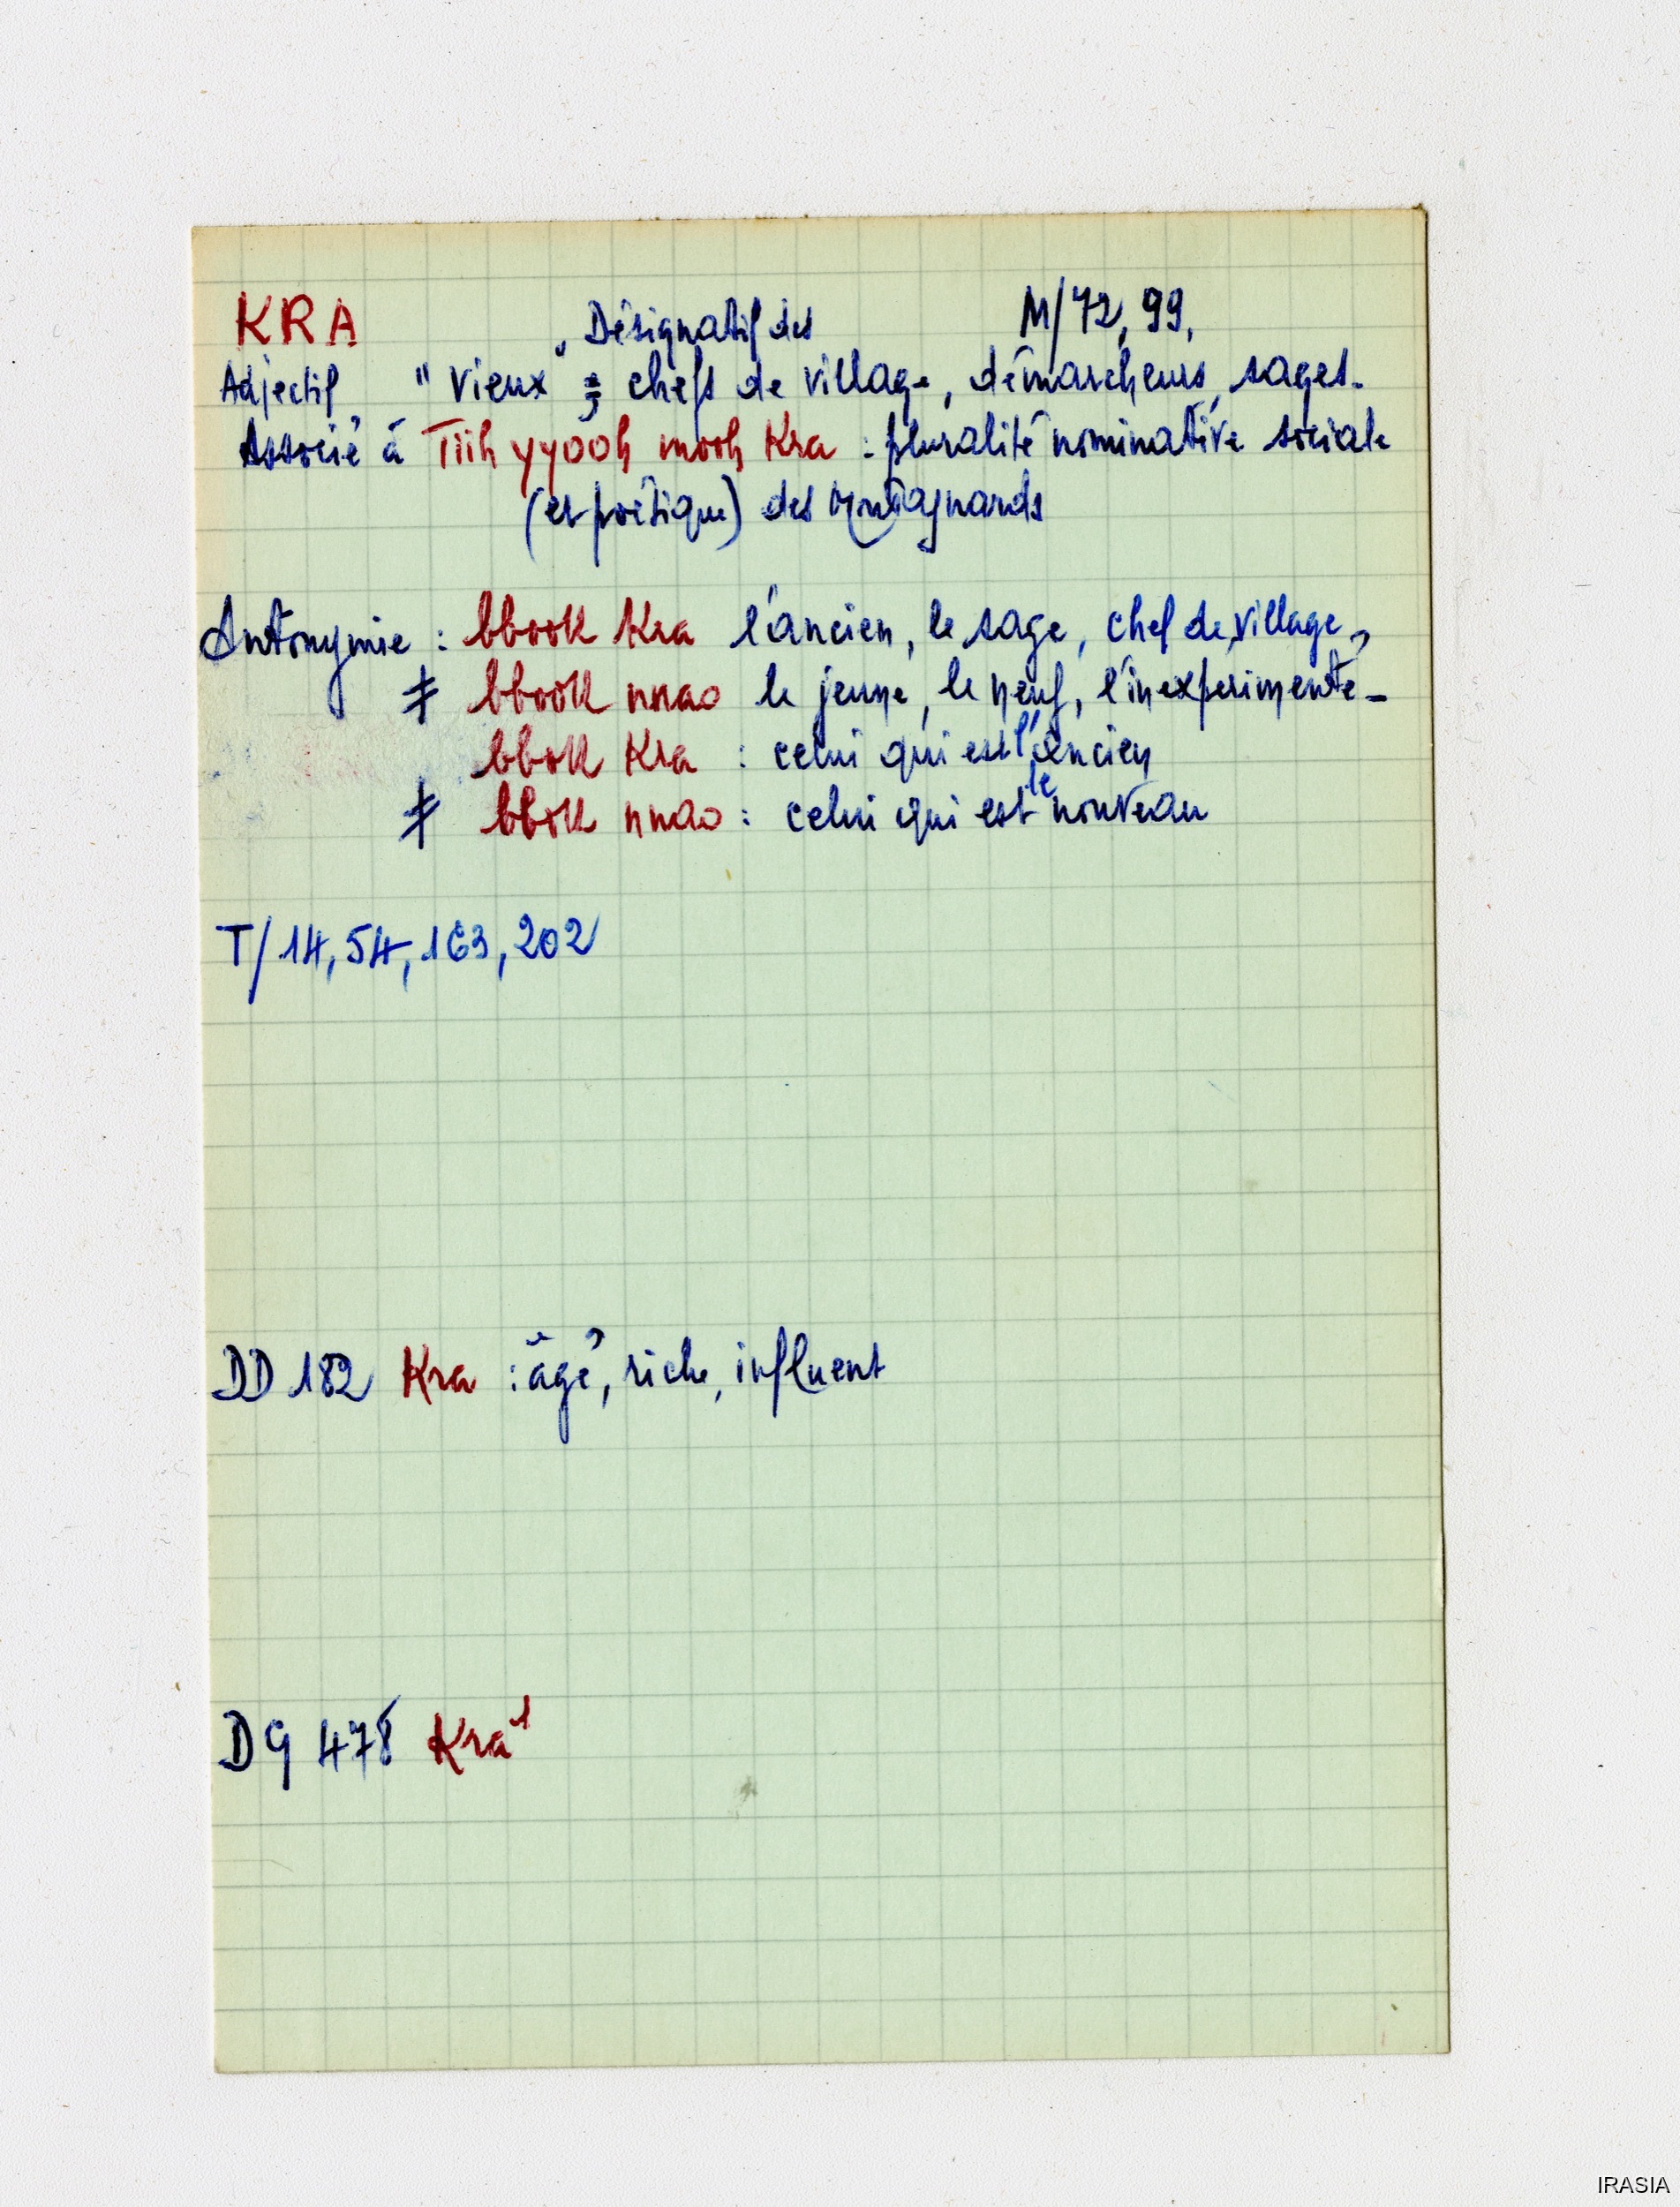 KRA Désignatif des M/72, 99,
Adjectif "Vieux" ; chefs de village, démarcheurs, sages.
Associé à Tiih yyooh mooh Kra : pluralité nominative sociale
(et poétique) des Montagnards
Antonymie : bbook Kra l'ancien, le sage, chef de village,
≠ bbook nnao le jeune, le neuf, l'inexpérimenté -
bbok Kra : celui qui est l'ancien
≠ bbok nnao : celui qui est le nouveau
T/14, 54, 163, 202
DD 182 Kra : âgé, riche, influent
DG 478 Kra¹
IRASIA